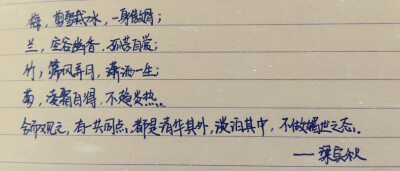 梅，剪雪裁冰，一身傲骨；
兰，空谷幽香，孤芳自赏；
竹，筛风弄月，潇洒一生；
菊，凌霜自得，不趋炎热。
合而观之，有一共同点，都是清华其外，淡泊其中，不做媚世之态。
——梁实秋